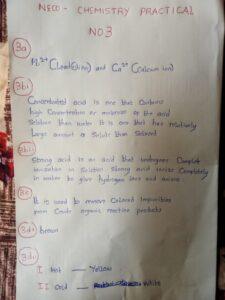 NECO - CHEMISTRY PRACTICAL
NO3
3a
Pb²⁺ (Lead(II) ion) and Ca²⁺ (Calcium ion)
3bi
Concentrated acid is one that Contains
high Concentration or molarity of the acid
Solution than water. It is one that has relatively
Large amount of Solute than Solvent
3bii
Strong acid is an acid that undergoes Complete
ionization in Solution. Strong acid ionize Completely
in water to give hydrogen ions and anions
3c
It is used to remove Colored Impurities
from Crude organic reaction products
3di
brown
3dii
I hot — Yellow
II Cold — White